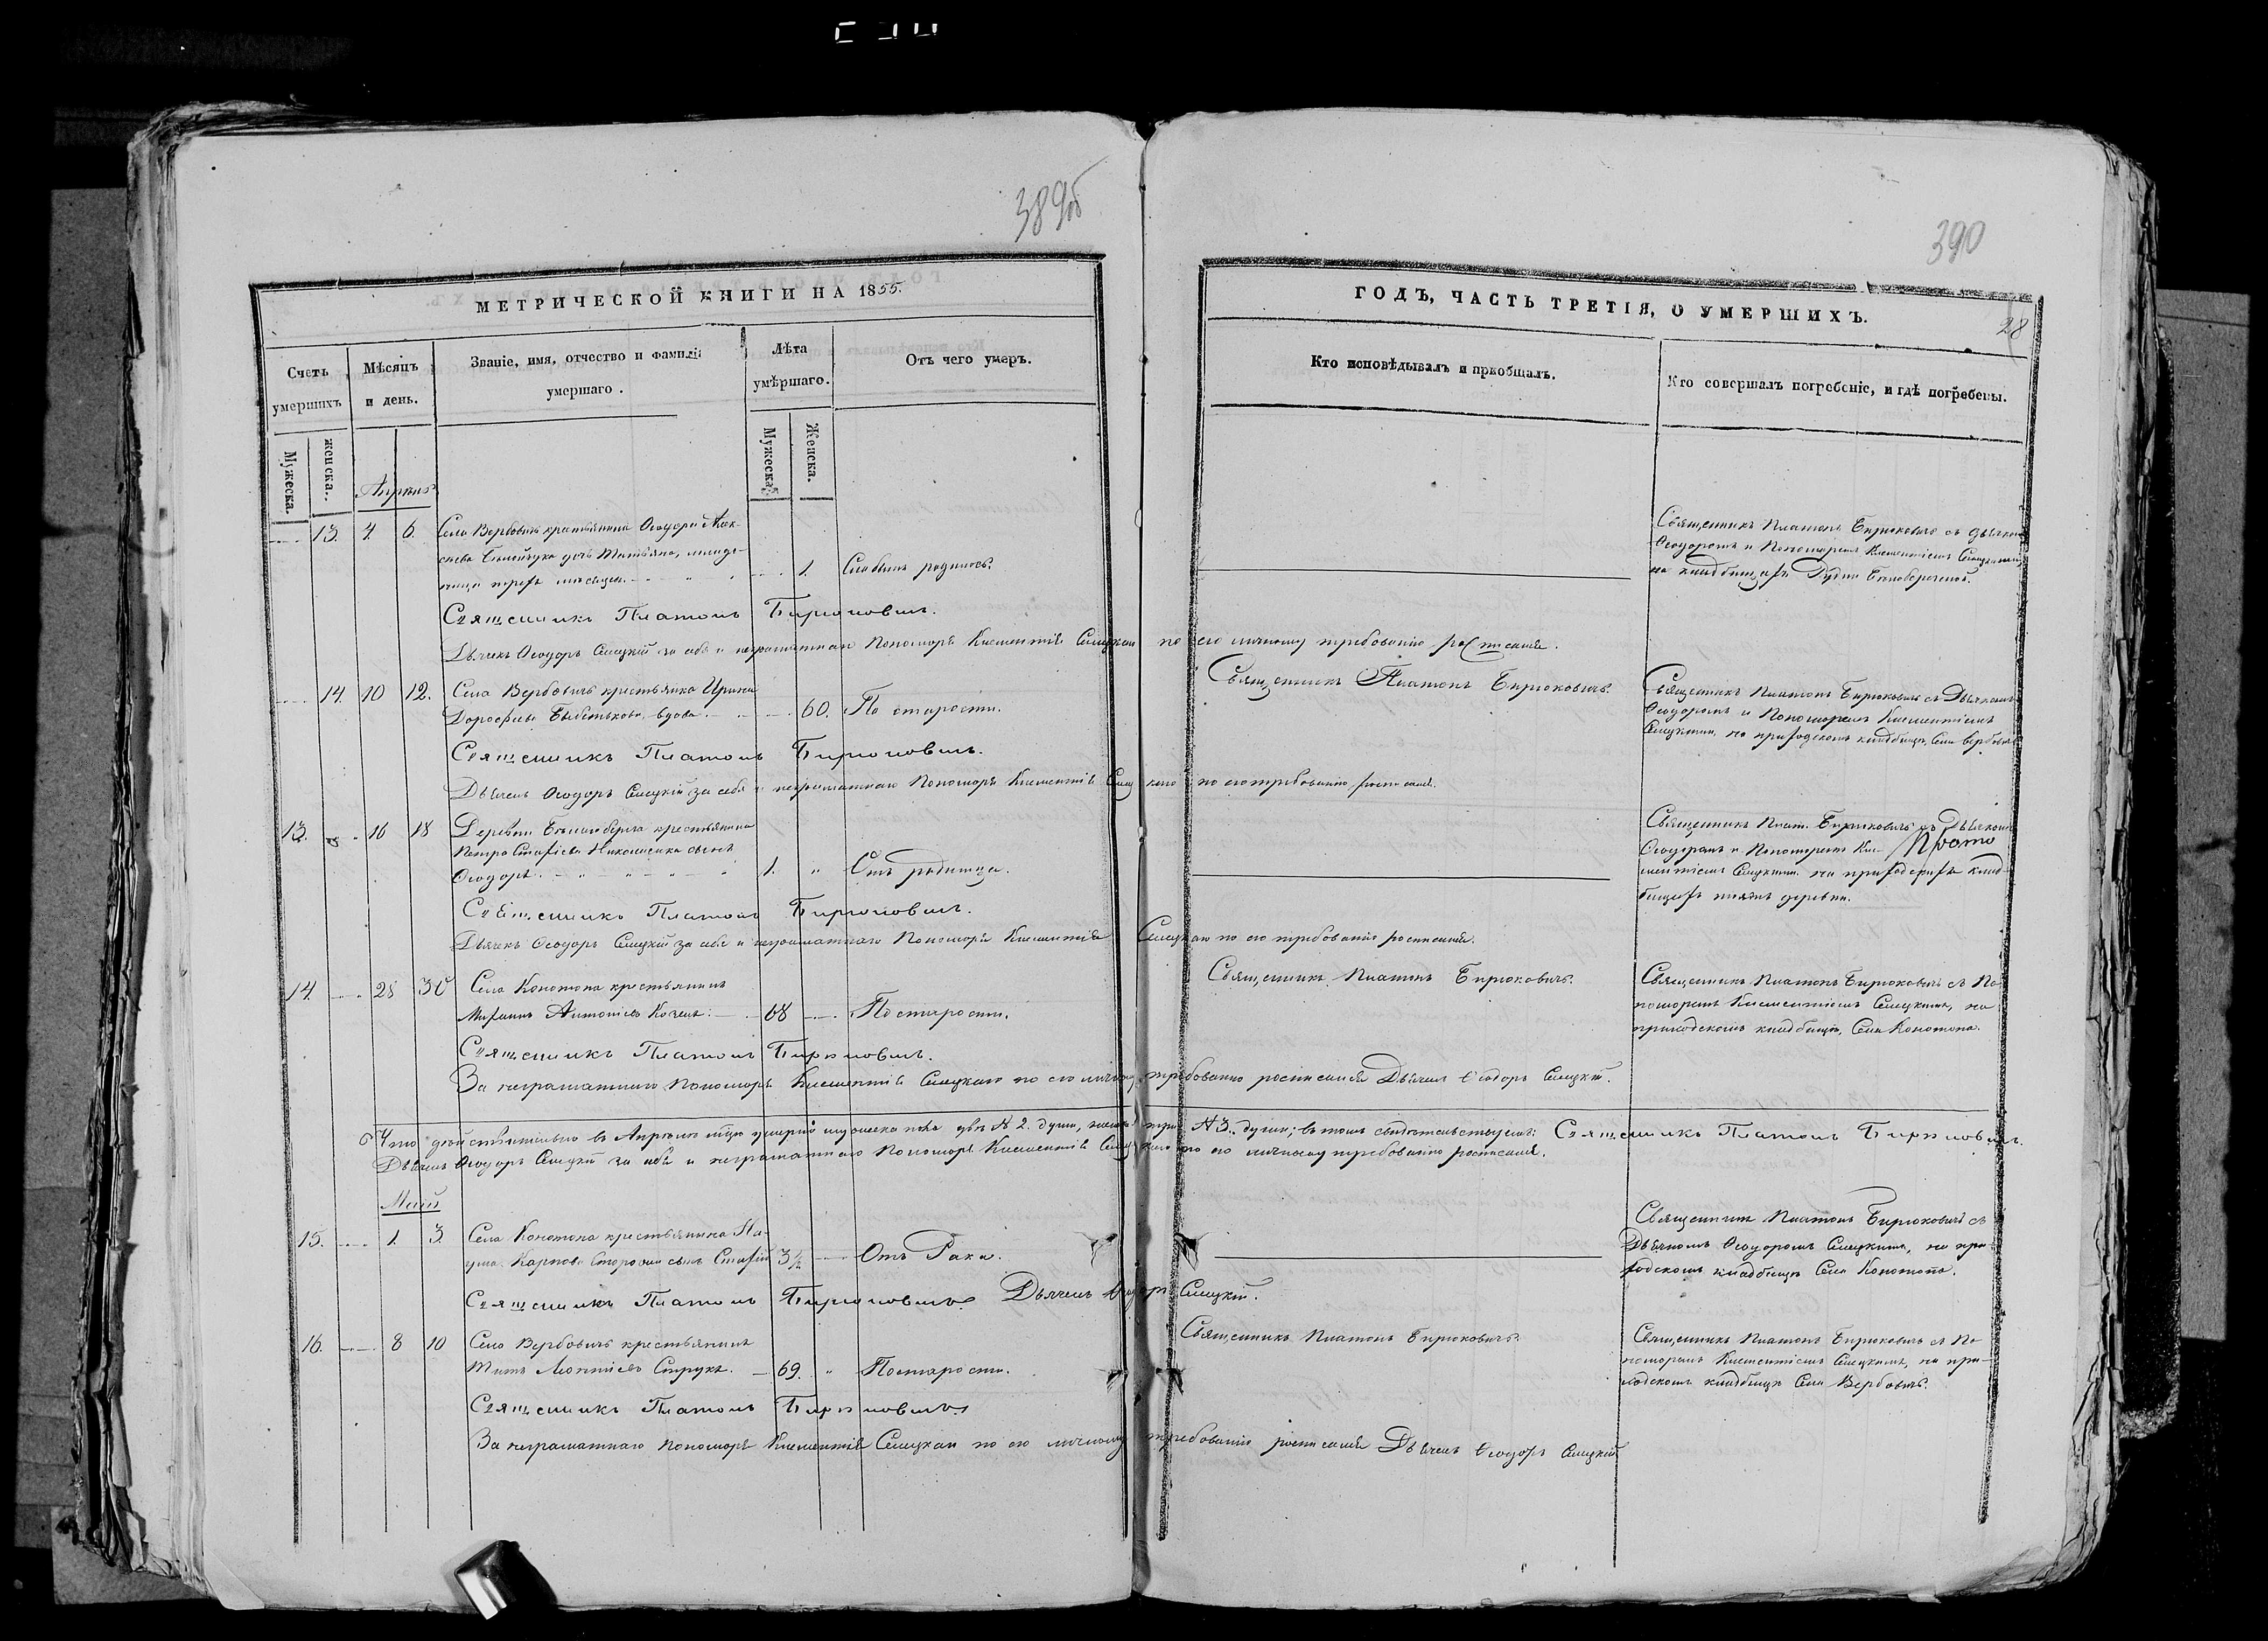 389об
390
28
МЕТРИЧЕСКОЙ КНИГИ НА 1855.
ГОДЪ, ЧАСТЬ ТРЕТІЯ, О УМЕРШИХЪ.
Счетъ умершихъ
Мѣсяцъ и день.
Званіе, имя, отчество и фамилія умершаго.
Лѣта умѣршаго.
Отъ чего умеръ.
Кто исповѣдывалъ и пріобщалъ.
Кто совершалъ погребеніе, и гдѣ погребены.
Мужеска.
женска.
Мужеска
Женска.
Апрель
13. 4 6. Села Вербовичъ крестьянина Ѳеодора Алек-
дочь Татьяна, младе-
1. Слабымъ родилось.
Священникъ Платонъ Бирюковичъ съ Дьячкомъ
Ѳеодоромъ и Пономаремъ Климентіемъ Слуцкимъ
на кладбищахъ
Священникъ Платонъ Бирюковичъ.
Дьячекъ Ѳеодоръ Слуцкій за себя и неграматнаго Пономаря Климентія Слуцкаго по его личному требованію росписался.
14. 10 12. Села Вербовичъ крестьянка Ирина
Дорофеева вдова. 60. По старости.
Священникъ Платонъ Бирюковичъ.
Священникъ Платонъ Бирюковичъ съ Дьячкомъ
Ѳеодоромъ и Пономаремъ Климентіемъ
Слуцкими, на приходскомъ кладбищѣ, Села Вербовичъ
Священникъ Платонъ Бирюковичъ.
Дьячекъ Ѳеодоръ Слуцкій за себя и неграматнаго Пономаря Климентія Слуцкаго по его требованію росписался.
13. 16 18 Деревни крестьянина
Петра Стахіева Николаенка сынъ
Ѳеодоръ. 1. " Отъ родимца.
Священникъ Плат. Бирюковичъ съ Дьячкомъ
Ѳеодоромъ и Пономаремъ Кли-
ментіемъ Слуцкими на приходскихъ клад-
бищахъ деревни.
Священникъ Платонъ Бирюковичъ.
Дьячекъ Ѳеодоръ Слуцкій за себя и неграматнаго Пономаря Климентія Слуцкаго по его требованію росписался.
14. 28 30 Села Конотопа крестьянинъ
Антоніевъ 68 По старости.
Священникъ Платонъ Бирюковичъ.
Священникъ Платонъ Бирюковичъ съ По-
номаремъ Климентіемъ Слуцкимъ, на
приходскомъ кладбищѣ, Села Конотопа.
Священникъ Платонъ Бирюковичъ.
За неграматнаго Пономаря Климентія Слуцкаго по его личному требованію росписался Дьячекъ Ѳеодоръ Слуцкій.
Что действительно въ Апрелѣ мѣсяцѣ умерло мужеска пола двѣ № 2. души, женска три № 3. души; въ томъ свидѣтельствуемъ: Священникъ Платонъ Бирюковичъ.
Дьячекъ Ѳеодоръ Слуцкій за себя и неграматнаго Пономаря Климентія Слуцкаго по его личному требованію росписался.
Май
15. 1. 3. Села Конотопа крестьянина На-
ума Карпова сынъ Стахій 3½ Отъ Рака.
Священникъ Платонъ Бирюковичъ съ
Дьячкомъ Ѳеодоромъ Слуцкимъ, на при-
ходскомъ кладбищѣ Села Конотопа.
Священникъ Платонъ Бирюковичъ. Дьячекъ Ѳеодоръ Слуцкій.
16. 8 10 Села Вербовичъ крестьянинъ
Титъ Леонтіевъ Струкъ. 69. " По старости.
Священникъ Платонъ Бирюковичъ.
Священникъ Платонъ Бирюковичъ съ По-
номаремъ Климентіемъ Слуцкимъ, на при-
ходскомъ кладбищѣ Села Вербовичъ.
Священникъ Платонъ Бирюковичъ
За неграматнаго Пономаря Климентія Слуцкаго по его личному требованію росписался Дьячекъ Ѳеодоръ Слуцкій